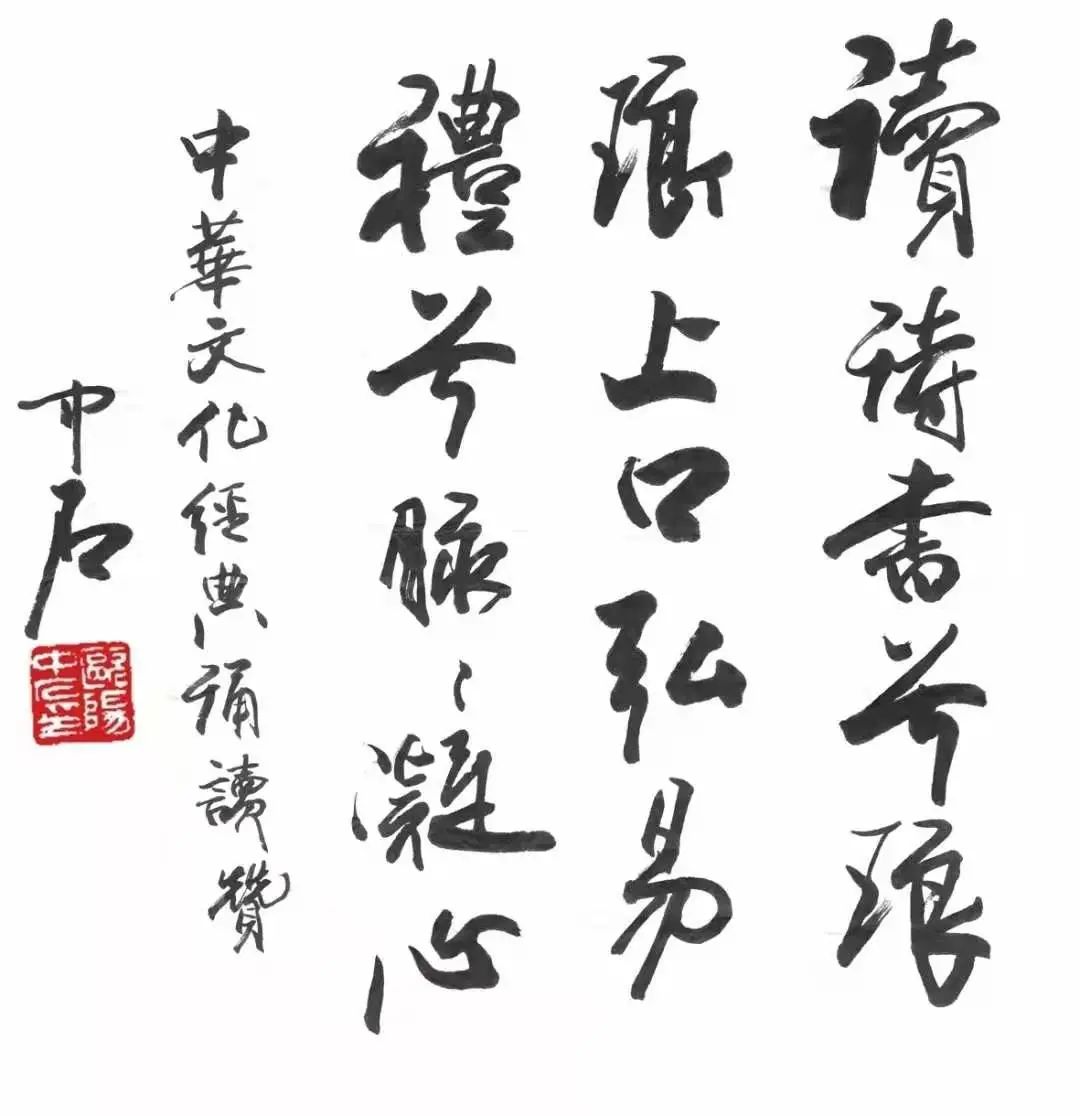 讀詩書兮琅
琅上口弘易
禮兮脈〻凝心
中華文化經典誦讀贊
中石
歐陽中石